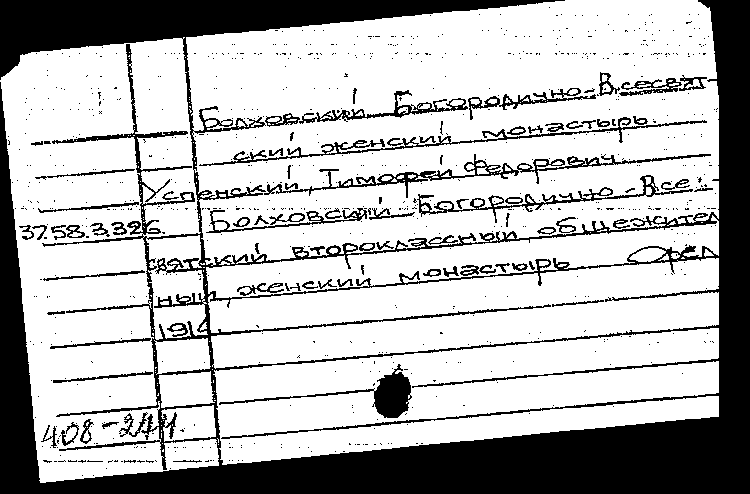 Болховский Богородично-Всесвят-
ский женский монастырь.
Успенский, Тимофей Федорович.
37.58.3.326. Болховский Богородично-Все-
святский второклассный, общежител
ный, женский монастырь Орел
1914.
408-244.